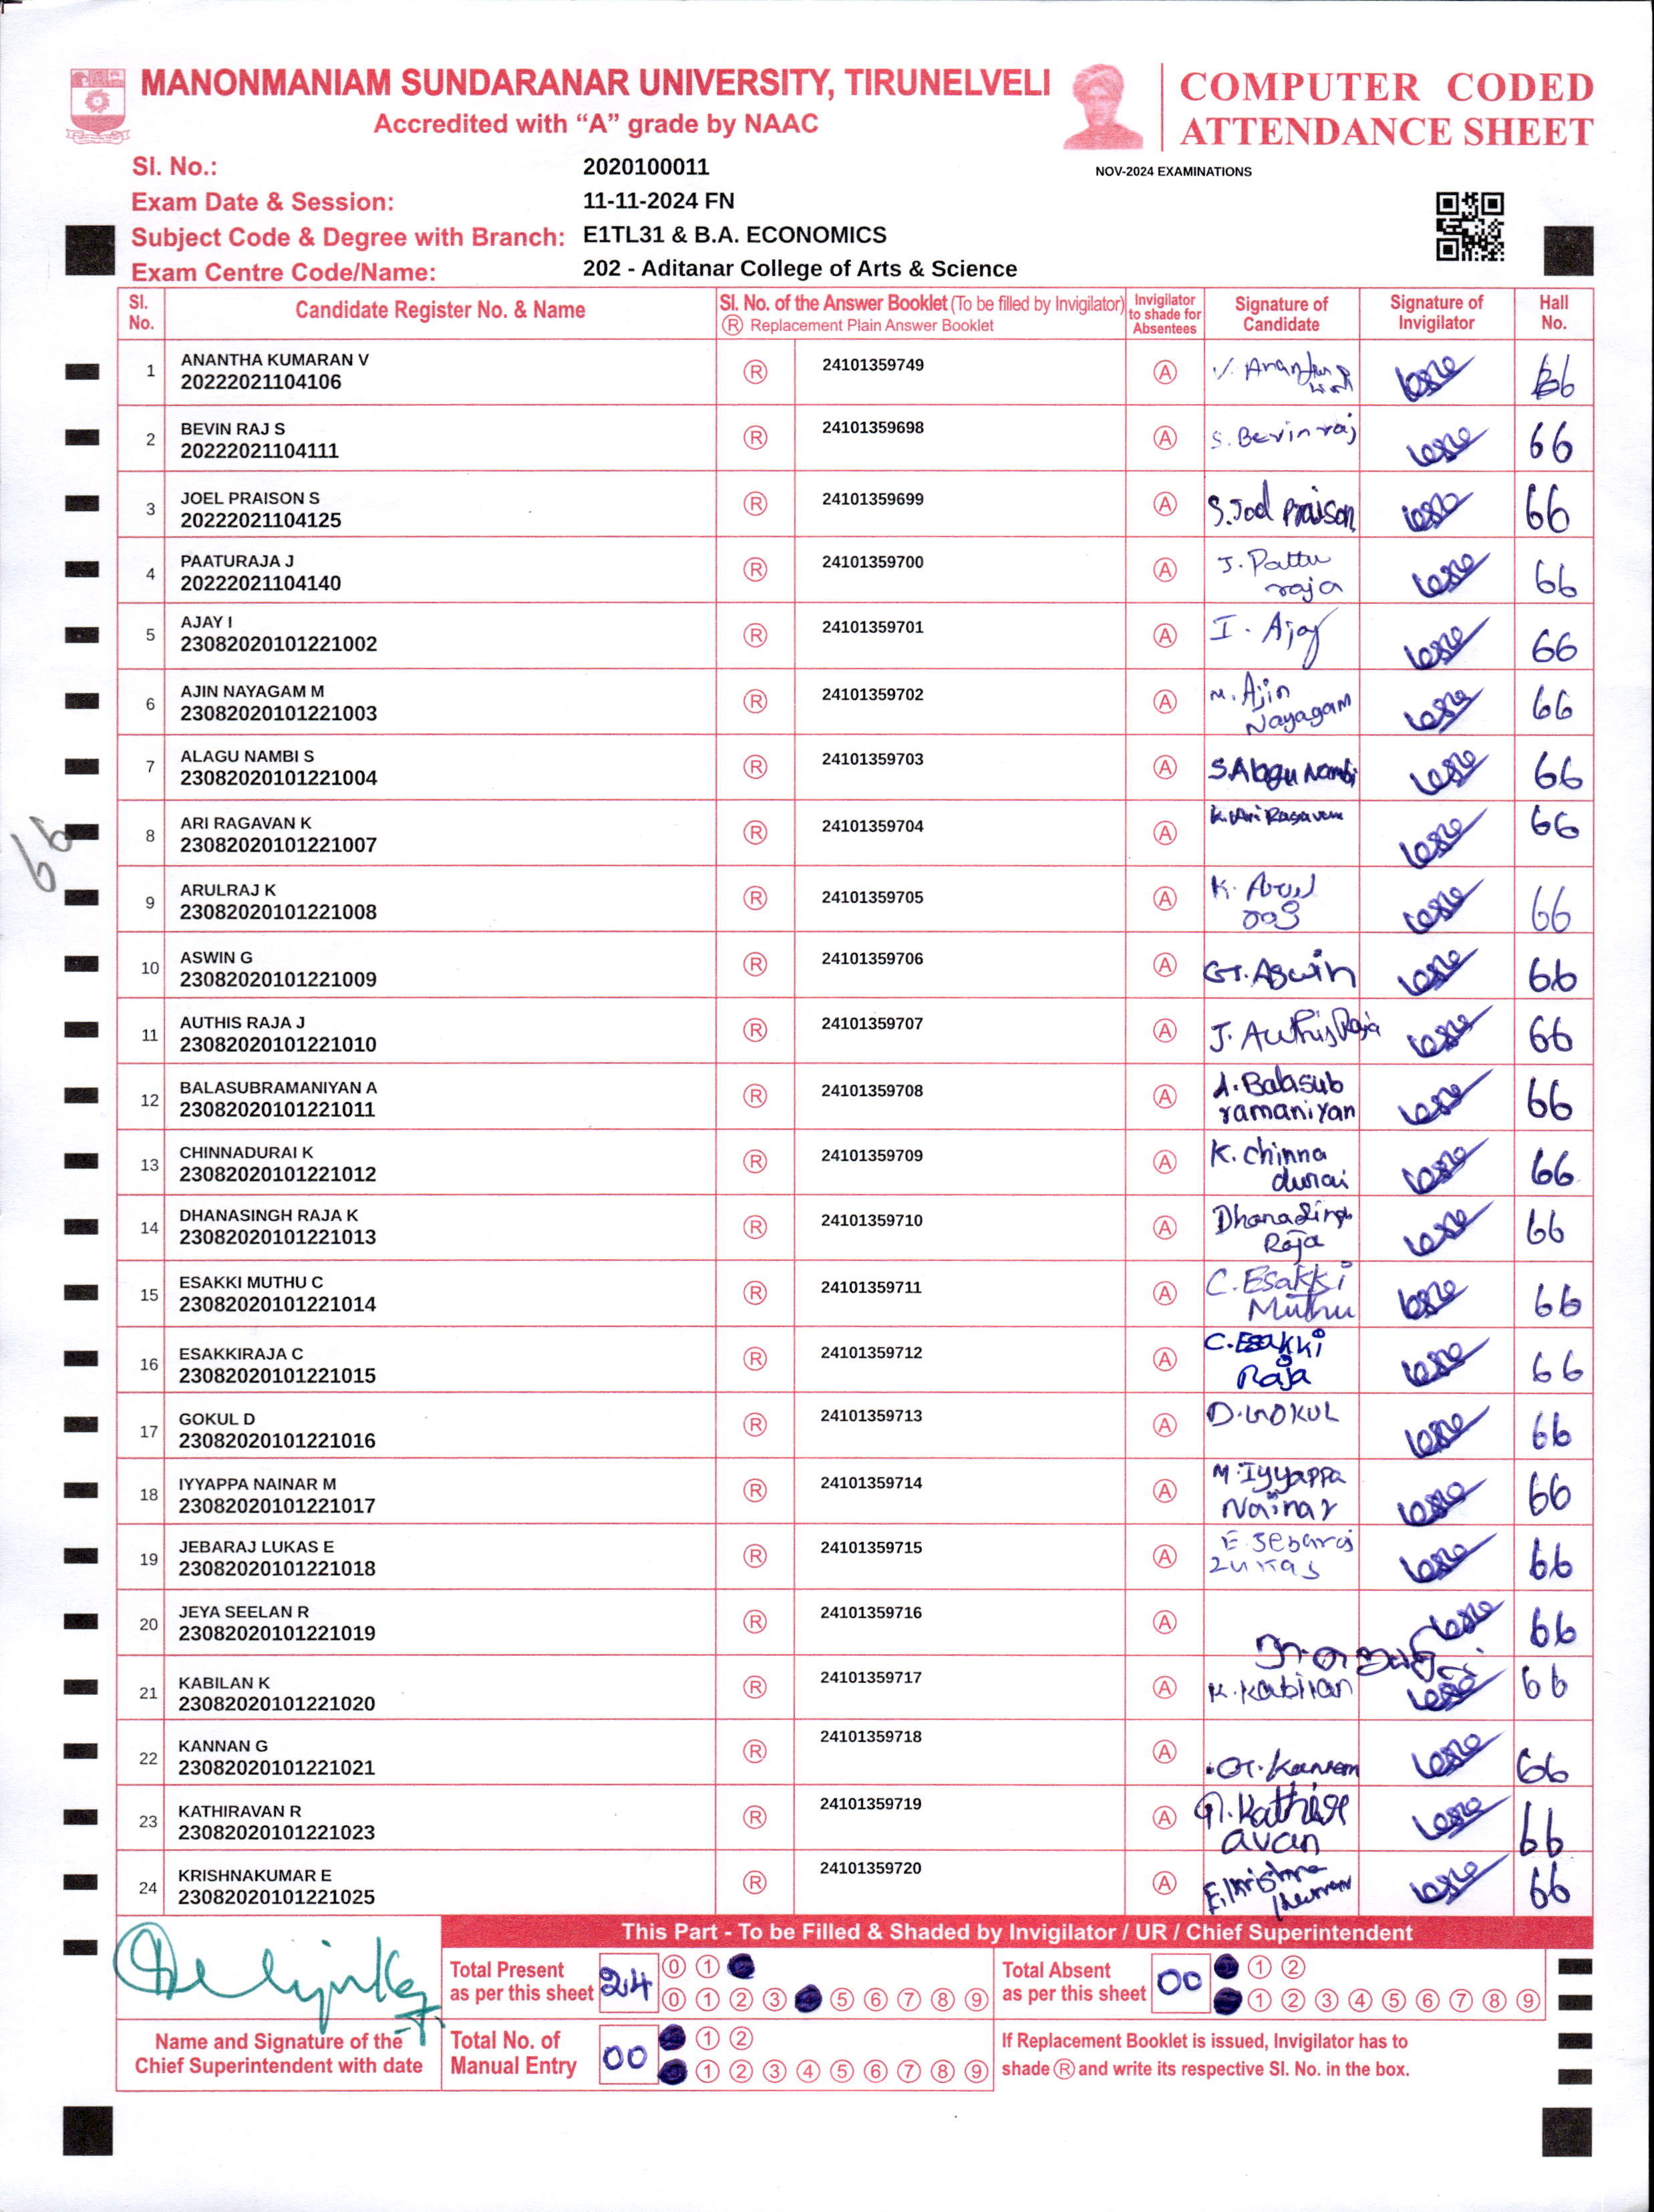 MANONMANIAM SUNDARANAR UNIVERSITY, TIRUNELVELI
Accredited with “A” grade by NAAC
COMPUTER CODED
ATTENDANCE SHEET
NOV-2024 EXAMINATIONS
Sl. No.: 2020100011
Exam Date & Session: 11-11-2024 FN
Subject Code & Degree with Branch: E1TL31 & B.A. ECONOMICS
Exam Centre Code/Name: 202 - Aditanar College of Arts & Science
Sl. No. Candidate Register No. & Name Sl. No. of the Answer Booklet (To be filled by Invigilator) Ⓡ Replacement Plain Answer Booklet Invigilator to shade for Absentees Signature of Candidate Signature of Invigilator Hall No.
1 ANANTHA KUMARAN V Ⓡ 24101359749 Ⓐ 66
20222021104106
2 BEVIN RAJ S Ⓡ 24101359698 Ⓐ S. Bevin raj 66
20222021104111
3 JOEL PRAISON S Ⓡ 24101359699 Ⓐ S. Joel Praison 66
20222021104125
4 PAATURAJA J Ⓡ 24101359700 Ⓐ J. Pattu raja 66
20222021104140
5 AJAY I Ⓡ 24101359701 Ⓐ I. Ajay 66
23082020101221002
6 AJIN NAYAGAM M Ⓡ 24101359702 Ⓐ M. Ajin Nayagam 66
23082020101221003
7 ALAGU NAMBI S Ⓡ 24101359703 Ⓐ S Alagu Nambi 66
23082020101221004
8 ARI RAGAVAN K Ⓡ 24101359704 Ⓐ K. Ari Ragavan 66
23082020101221007
66
9 ARULRAJ K Ⓡ 24101359705 Ⓐ K. Arul raj 66
23082020101221008
10 ASWIN G Ⓡ 24101359706 Ⓐ G. Aswin 66
23082020101221009
11 AUTHIS RAJA J Ⓡ 24101359707 Ⓐ J. Authis Raja 66
23082020101221010
12 BALASUBRAMANIYAN A Ⓡ 24101359708 Ⓐ A. Balasub ramaniyan 66
23082020101221011
13 CHINNADURAI K Ⓡ 24101359709 Ⓐ K. chinna durai 66
23082020101221012
14 DHANASINGH RAJA K Ⓡ 24101359710 Ⓐ Dhanasingh Raja 66
23082020101221013
15 ESAKKI MUTHU C Ⓡ 24101359711 Ⓐ C. Esakki Muthu 66
23082020101221014
16 ESAKKIRAJA C Ⓡ 24101359712 Ⓐ C. Esakki Raja 66
23082020101221015
17 GOKUL D Ⓡ 24101359713 Ⓐ D. GOKUL 66
23082020101221016
18 IYYAPPA NAINAR M Ⓡ 24101359714 Ⓐ M. Iyyappa Nainar 66
23082020101221017
19 JEBARAJ LUKAS E Ⓡ 24101359715 Ⓐ E. Jebaraj Lukas 66
23082020101221018
20 JEYA SEELAN R Ⓡ 24101359716 Ⓐ 66
23082020101221019
21 KABILAN K Ⓡ 24101359717 Ⓐ K. Kabilan 66
23082020101221020
22 KANNAN G Ⓡ 24101359718 Ⓐ G. Kannan 66
23082020101221021
23 KATHIRAVAN R Ⓡ 24101359719 Ⓐ R. Kathir avan 66
23082020101221023
24 KRISHNAKUMAR E Ⓡ 24101359720 Ⓐ E. Krishna kumar 66
23082020101221025
This Part - To be Filled & Shaded by Invigilator / UR / Chief Superintendent
Total Present as per this sheet 24 0 1
0 1 2 3 5 6 7 8 9
Total Absent as per this sheet 00 1 2
1 2 3 4 5 6 7 8 9
Name and Signature of the
Chief Superintendent with date
Total No. of Manual Entry 00 1 2
1 2 3 4 5 6 7 8 9
If Replacement Booklet is issued, Invigilator has to
shade Ⓡ and write its respective Sl. No. in the box.